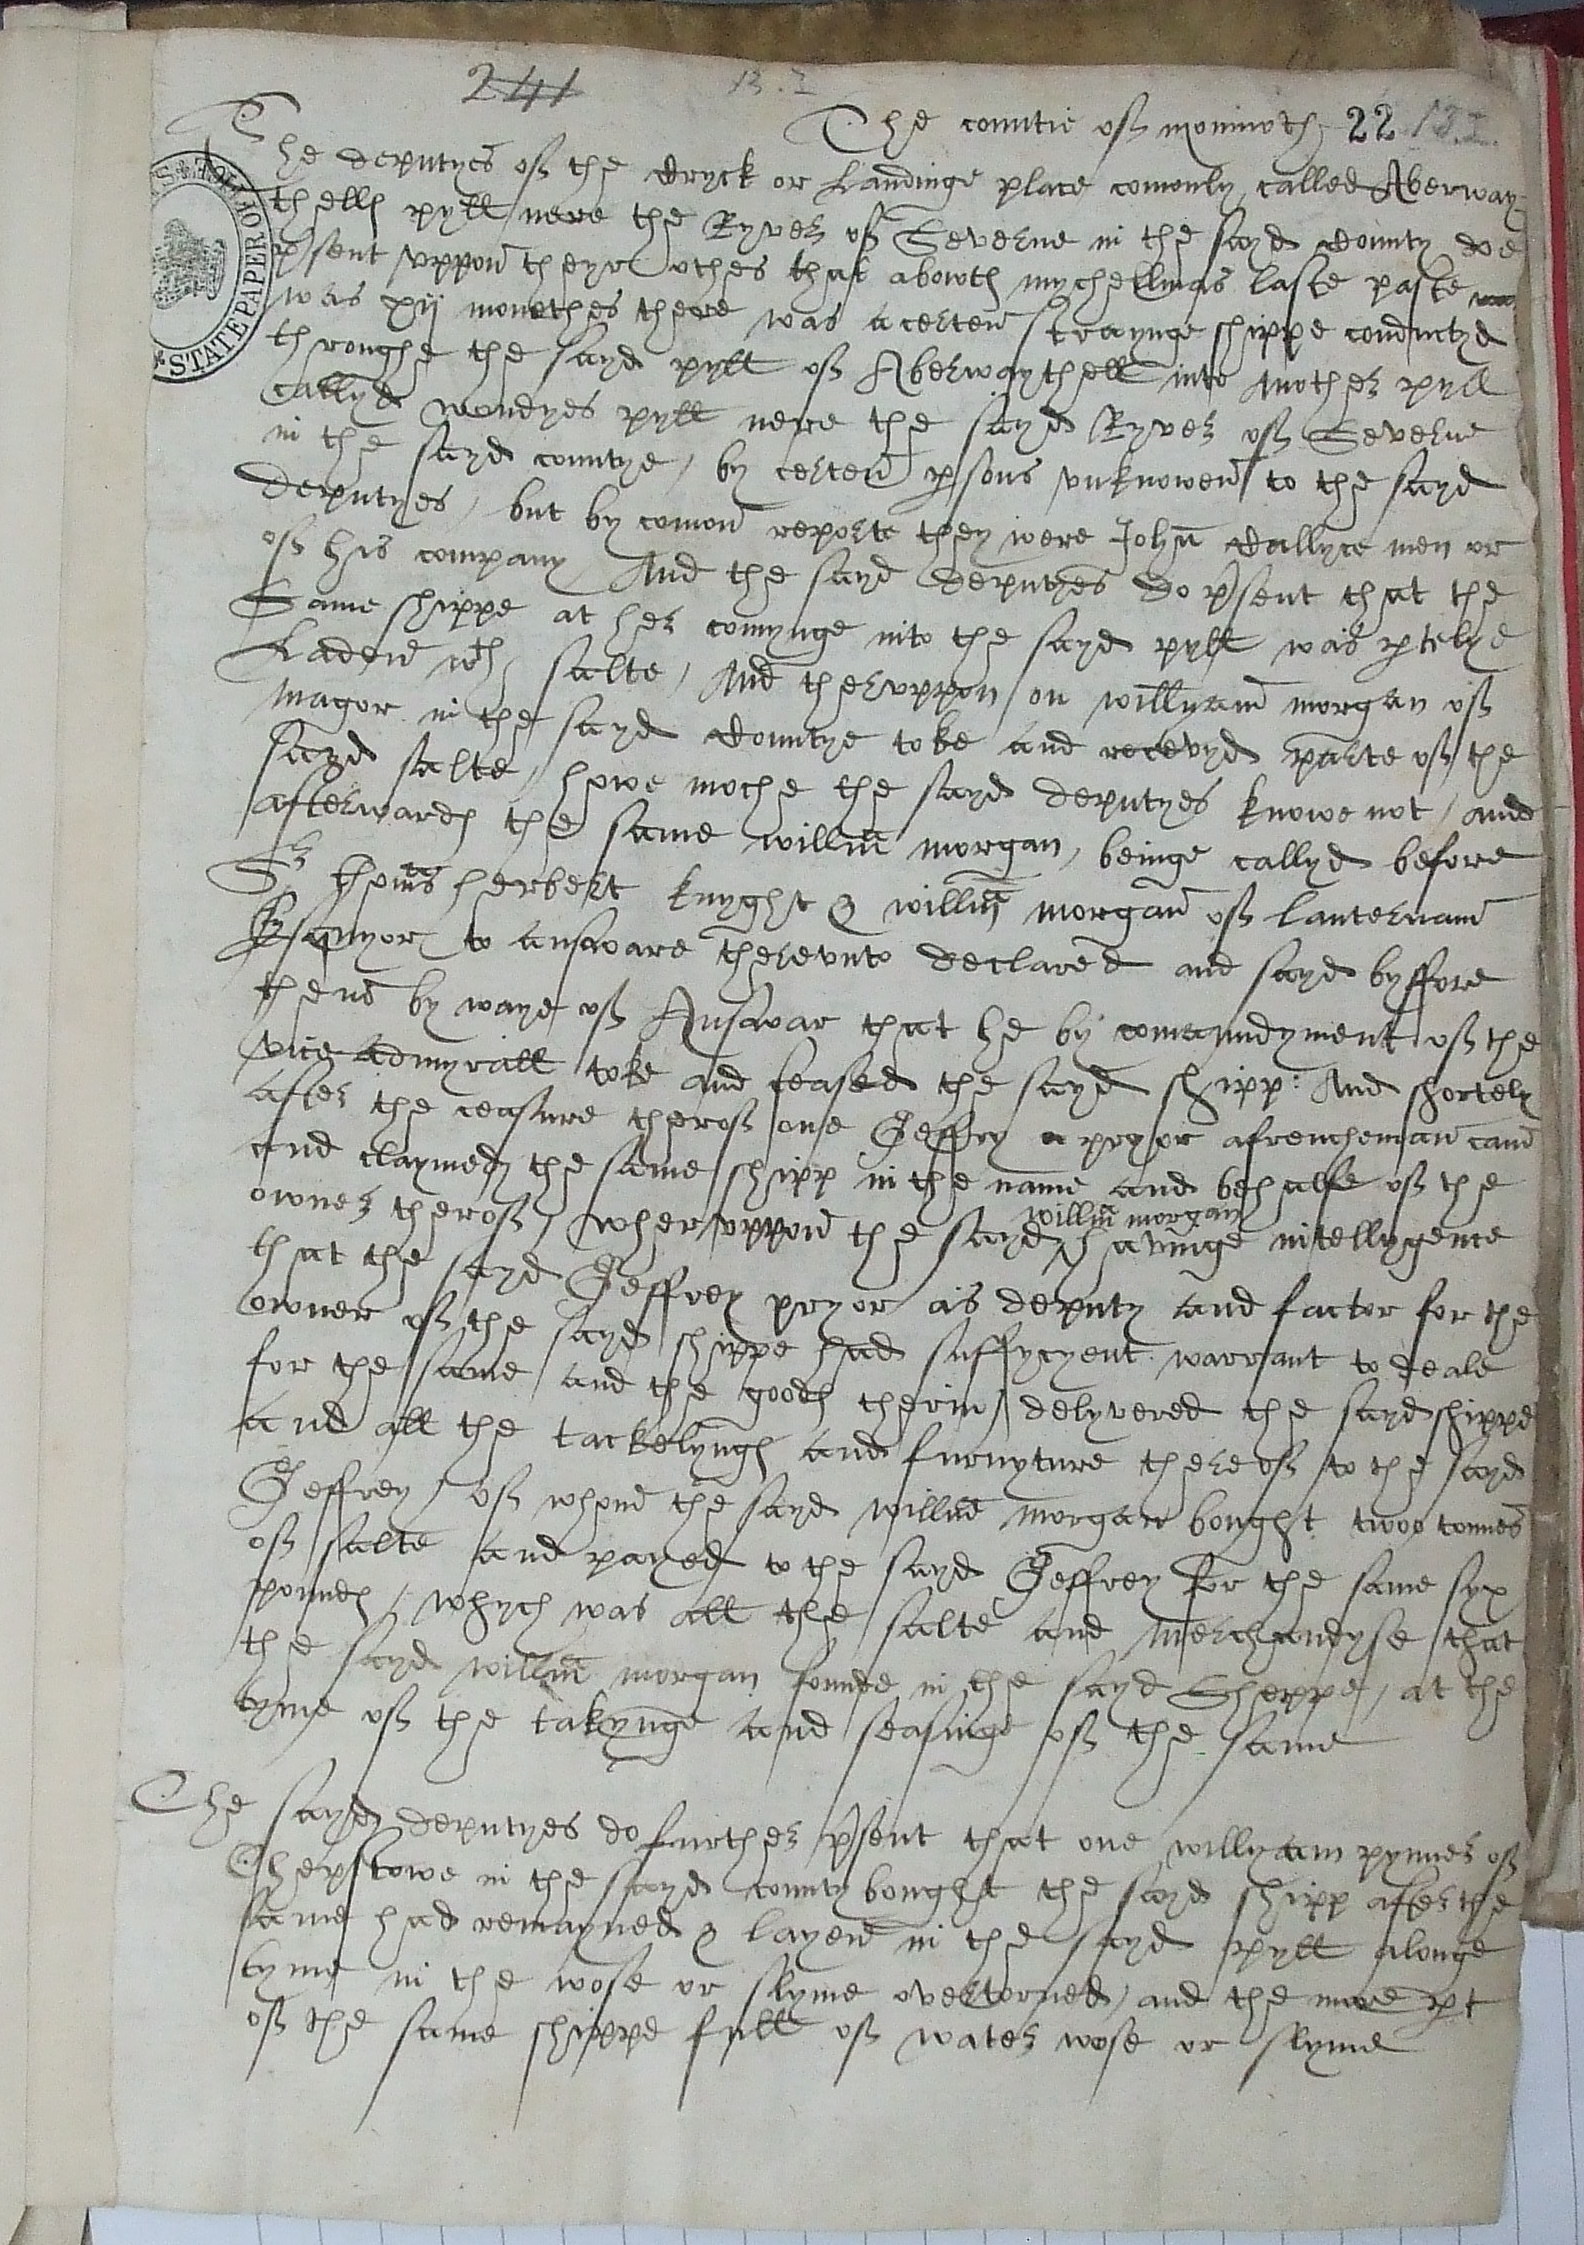 241 13. I
The countie off monmoth 22 13. I.
The deputyes off the Cryck or Landinge place comonly called Aberway-
thell pyll nere the Ryver off Severne in the sayd County doe
psent uppon theyre othes that abowth mychellmas laste paste
was xij monethes there was a certen straynge shippe conductyd
throughe the sayd pyll off Aberwaythell into Another pyll
callyd wondyes pyll nere the sayd Ryver off Severne
in the sayd countye, by certen psons unknowen to the sayd
deputyes, but by comon reporte they were John Callyce men or
off his company And the sayd deputyes do psent that the
Same shippe at her comynge into the sayd pyll was ptelye
Laden wth salte, And theruppon on willyam morgan off
magor in the sayd Countye toke and recevyd parte off the
sayd salte, howe moche the sayd deputyes knowe not, and
afterwardes the same willm morgan, beinge callyd before
Sr thomas herbert knyght & willm morgan off lanternam
Esqwyor to answare therevnto declared and sayd byffore
theme by waye off Answar that he by comaundyment off the
vice admyrall toke and ceased the sayd shipp: And shortely
after the ceasure theroff one Jeffry a pryor a frencheman cam
and claymed the same shipp in the name and behalfe off the
owner theroff, wheruppon the sayd willm morgan havinge intellygence
that the sayd Jeffrey pryor as deputy and factor for the
owner off the sayd shippe had suffycyent warrant to deale
for the same and the goodes therin, delyvered the sayd shippe
and all the tackelynges and furnyture thereoff to the sayd
Jeffrey, off whome the sayd willm morgan bought twoo tonnes
off salte and payed to the sayd Jeffrey for the same syx
poundes, whych was all the salte and merchandyse that
the sayd willm morgan founde in the sayd Sheppe, at the
tyme off the takynge and seasinge off the same
The sayd deputyes do further psent that one willyam pynner off
Chepstowe in the sayd county bought the sayd shipp after the
same had remayned & layen in the sayd pyll alonge
tyme in the wose or slyme overtorned, and the more pt
off the same shippe full off water wose or slyme
STATE PAPER OFFICE